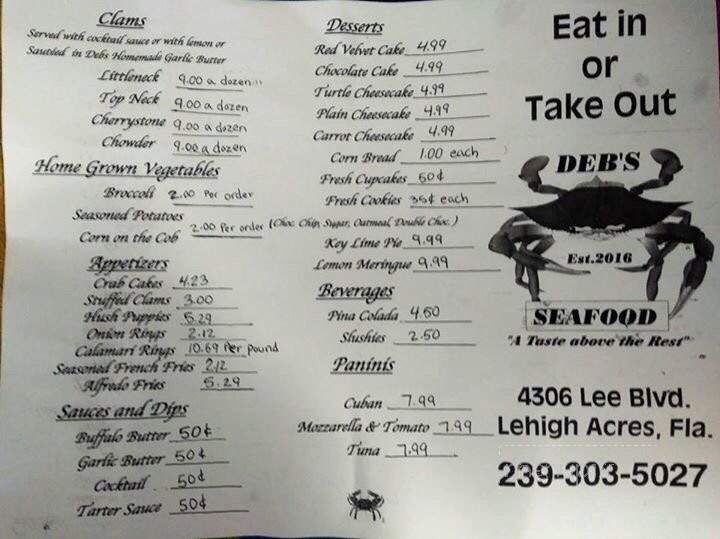 Clams
Served with cocktail sauce or with lemon or
Sautéed in Debs Homemade Garlic Butter
Littleneck 9.00 a dozen
Top Neck 9.00 a dozen
Cherrystone 9.00 a dozen
Chowder 9.00 a dozen
Home Grown Vegetables
Broccoli 2.00 Per order
Seasoned Potatoes
Corn on the Cob 2.00 Per order
Appetizers
Crab Cakes 4.23
Stuffed Clams 3.00
Hush Puppies 5.29
Onion Rings 2.12
Calamari Rings 10.69 Per pound
Seasoned French Fries 2.12
Alfredo Fries 5.29
Sauces and Dips
Buffalo Butter 50¢
Garlic Butter 50¢
Cocktail 50¢
Tarter Sauce 50¢
Desserts
Red Velvet Cake 4.99
Chocolate Cake 4.99
Turtle Cheesecake 4.99
Plain Cheesecake 4.99
Carrot Cheesecake 4.99
Corn Bread 1.00 each
Fresh Cupcakes 50¢
Fresh Cookies 35¢ each
(Choc. Chip, Sugar, Oatmeal, Double Choc.)
Key Lime Pie 9.99
Lemon Meringue 9.99
Beverages
Pina Colada 4.50
Slushies 2.50
Paninis
Cuban 7.99
Mozzarella & Tomato 7.99
Tuna 7.99
Eat in
or
Take Out
DEB'S
Est.2016
SEAFOOD
"A Taste above the Rest"
4306 Lee Blvd.
Lehigh Acres, Fla.
239-303-5027